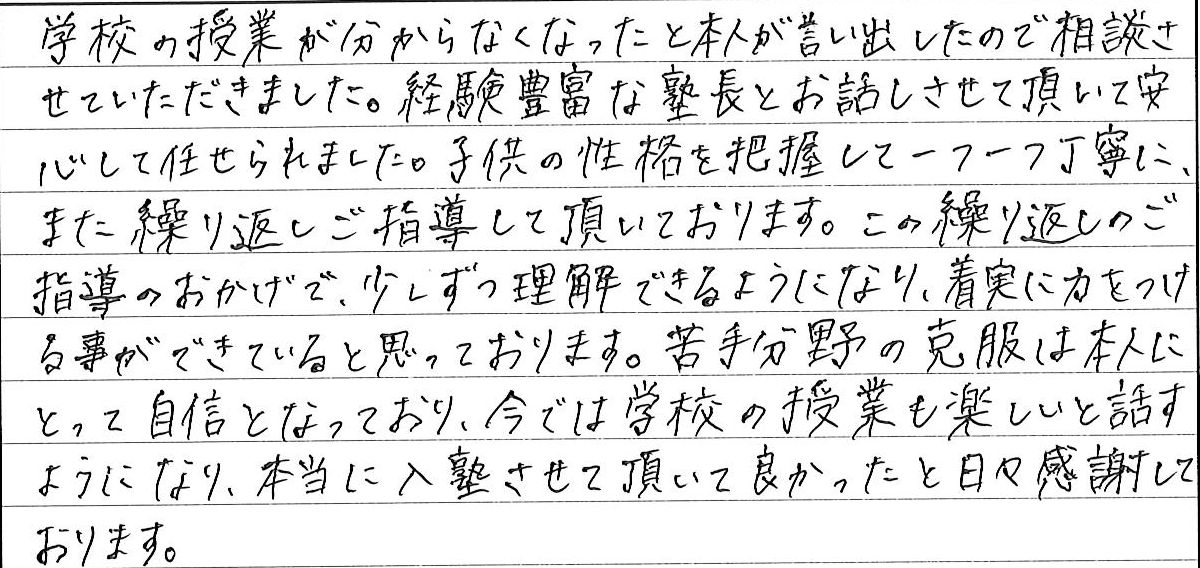 学校の授業が分からなくなったと本人が言い出したので相談さ
せていただきました。経験豊富な塾長とお話しさせて頂いて安
心して任せられました。子供の性格を把握して一つ一つ丁寧に、
また繰り返しご指導して頂いております。この繰り返しのご
指導のおかげで、少しずつ理解できるようになり、着実に力をつけ
る事ができていると思っております。苦手分野の克服は本人に
とって自信となっており、今では学校の授業も楽しいと話す
ようになり、本当に入塾させて頂いて良かったと日々感謝して
おります。